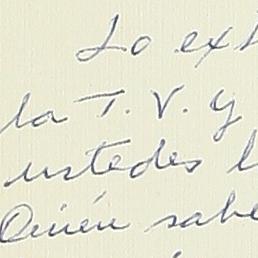 Lo ext
la T.V. y
ustedes l
Quién sabe